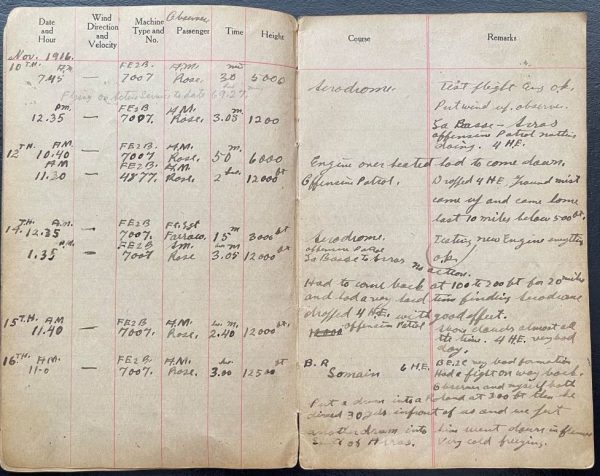 Date and Hour
Wind Direction and Velocity
Machine Type and No.
Observer
Passenger
Time
Height
Nov. 1916.
10TH. A.M. FE2B A.M. mts
7.45 — 7007 Rose. 30 5000
Flying on Active Service to date 69.27
P.M. FE2B A.M. m
12.35 — 7007. Rose. 3.05 1200
12TH. A.M. FE2B. A.M. m.
10.40 — 7007 Rose. 50 6000
A.M. FE2B A.M. hrs. ft
11.30 — 4877. Rose. 2 12000
14.TH. A.M. FE2B Ft.Sgt
12.35 — 7007. 15 m 3000 ft
P.M. FE2B m ft
1.35 7007 Rose 3.05 12000
15TH. AM FE2B. A.M. hr. M. ft.
11.40 — 7007. Rose. 2.40 12000
16TH. A.M. FE2B. A.M. hr. ft
11.0 — 7007. Rose. 3.00 12500
Course
Remarks
Aerodrome. Test flight Eng O.K.
Put wind up. observer.
La Basse — Arras
offensive Patrol nothing
doing. 4 H.E.
Engine over heated had to come down.
Offensive Patrol. Dropped 4 H.E. Ground mist
came up and came home
last 10 miles below 500 ft.
Aerodrome. Testing new Engine
offensive Patrol o.k.
La Basse to Arras no action.
Had to come back at 100 to 200 ft for 20 miles
and had a very bad time finding aerodrome
dropped 4 H.E. with good effect.
offensive Patrol clouds almost all
the time. 4 H.E. very bad
day.
B.R 6 H.E. B.E.2E very bad formation
Somain Had a fight on way back.
Observer and myself both
Put a drum into a Roland at 300 ft then he
dived 30 yds infront of us and we put
another drum into him went down in flames
South of Arras. Very cold freezing.